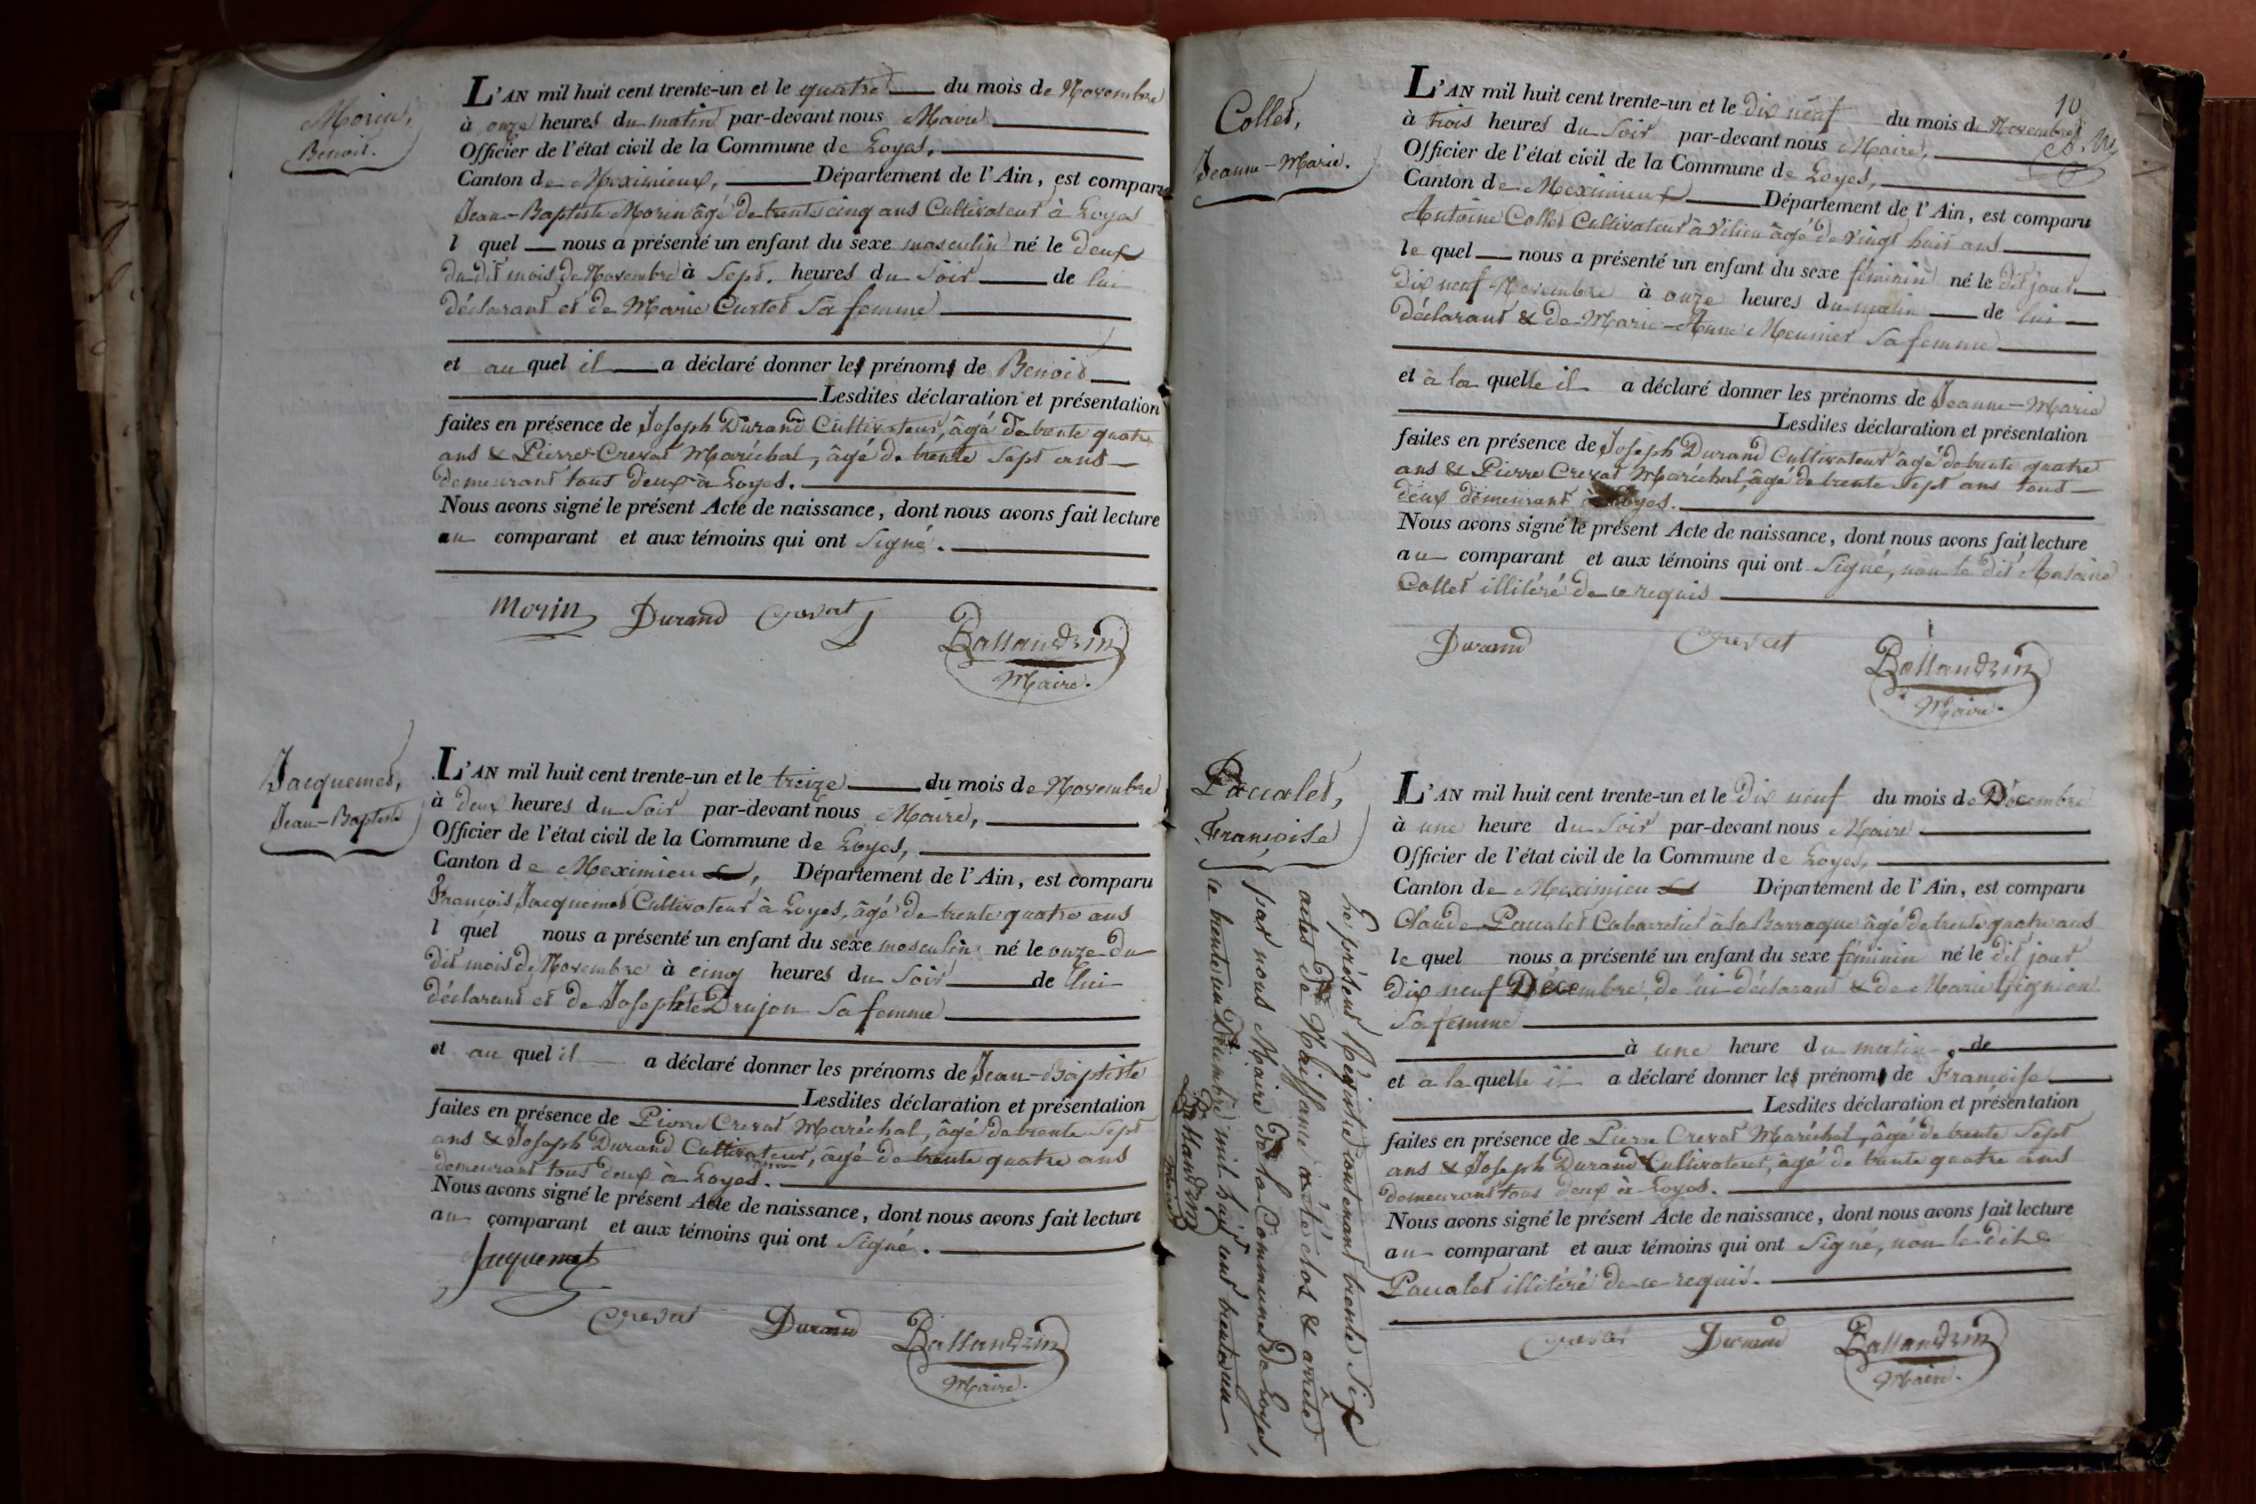 Morin,
Benoit.
L'AN mil huit cent trente-un et le quatre du mois de Novembre
à onze heures du matin par-devant nous Maire
Officier de l'état civil de la Commune de Loyes,
Canton de Meximieux, Département de l'Ain, est comparu
Jean-Baptiste Morin âgé de trente cinq ans Cultivateur à Loyes
l quel nous a présenté un enfant du sexe masculin né le deux
du dit mois de Novembre à Sept heures du Soir de lui
déclarant et de Marie Curtet Sa femme
et au quel il a déclaré donner les prénoms de Benoit
Lesdites déclaration et présentation
faites en présence de Joseph Durand Cultivateur, âgé de trente quatre
ans & Pierre Crevat Maréchal, âgé de trente Sept ans
demeurant tous deux à Loyes.
Nous avons signé le présent Acte de naissance, dont nous avons fait lecture
au comparant et aux témoins qui ont Signé.
Morin Durand Crevat
Ballandrin
Maire.
Jacquemet,
Jean-Baptiste
L'AN mil huit cent trente-un et le treize du mois de Novembre
à deux heures du Soir par-devant nous Maire,
Officier de l'état civil de la Commune de Loyes,
Canton de Meximieu, Département de l'Ain, est comparu
François Jacquemet Cultivateur à Loyes, âgé de trente quatre ans
l quel nous a présenté un enfant du sexe masculin né le onze du
dit mois de Novembre à cinq heures du Soir de lui
déclarant et de Josephte Drujon Sa femme
et au quel il a déclaré donner les prénoms de Jean-Baptiste
Lesdites déclaration et présentation
faites en présence de Pierre Crevat Maréchal, âgé de trente Sept
ans & Joseph Durand Cultivateur, âgé de trente quatre ans
demeurant tous deux à Loyes.
Nous avons signé le présent Acte de naissance, dont nous avons fait lecture
au comparant et aux témoins qui ont Signé.
Jacquemet
Crevat Durand Ballandrin
Maire.
10
Collet,
Jeanne-Marie.
L'AN mil huit cent trente-un et le dix neuf du mois de Novembre
à trois heures du Soir par-devant nous Maire,
Officier de l'état civil de la Commune de Loyes,
Canton de Meximieux Département de l'Ain, est comparu
Antoine Collet Cultivateur à Vilieu âgé de vingt huit ans
le quel nous a présenté un enfant du sexe féminin né le dit jour
dix neuf Novembre à onze heures du matin de lui
déclarant & de Marie-Anne Meunier Sa femme
et à la quelle il a déclaré donner les prénoms de Jeanne-Marie
Lesdites déclaration et présentation
faites en présence de Joseph Durand Cultivateur âgé de trente quatre
ans & Pierre Crevat Maréchal, âgé de trente Sept ans tous
deux demeurant à Loyes.
Nous avons signé le présent Acte de naissance, dont nous avons fait lecture
au comparant et aux témoins qui ont Signé, non le dit Antoine
Collet illitéré de ce requis
Durand Crevat Ballandrin
Maire.
Paualet,
Françoise
L'AN mil huit cent trente-un et le dix neuf du mois de Décembre
à une heure du Soir par-devant nous Maire
Officier de l'état civil de la Commune de Loyes,
Canton de Meximieu Département de l'Ain, est comparu
Claude Paualet Cabaretier à la Barraque âgé de trente quatre ans
le quel nous a présenté un enfant du sexe féminin né le dit jour
dix neuf Décembre, de lui déclarant & de Marie
Sa femme
à une heure du matin, de
et à la quelle il a déclaré donner les prénoms de Françoise
Lesdites déclaration et présentation
faites en présence de Pierre Crevat Maréchal, âgé de trente Sept
ans & Joseph Durand Cultivateur, âgé de trente quatre ans
demeurant tous deux à Loyes.
Nous avons signé le présent Acte de naissance, dont nous avons fait lecture
au comparant et aux témoins qui ont Signé, non le dit
Paualet illitéré de ce requis.
Crevat Durand Ballandrin
Maire.
Le présent Régistre contenant trente Six
actes de Naissance a été clos & arreté
par nous Maire de la Commune de Loyes,
le trente un Décembre mil huit cent trente un
Ballandrin
Maire